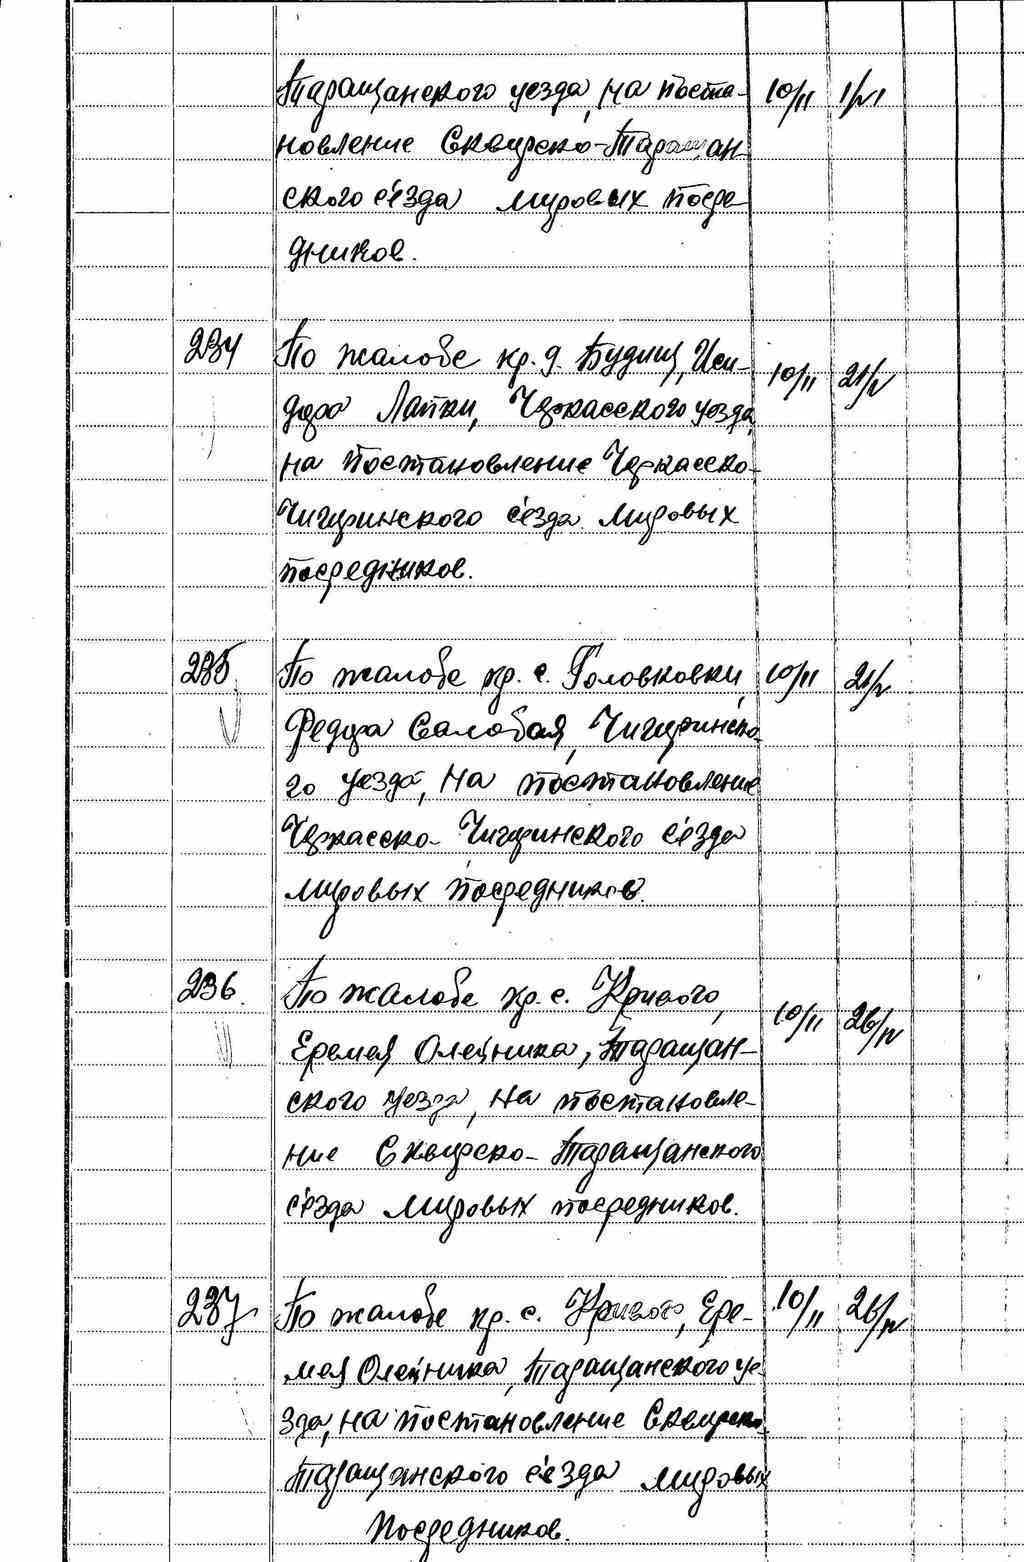 Таращанского уезда, на поста- 10/II 1/VI
новление Сквирско-Таращан-
ского с'езда мировых посре
дников.
234 По жалобе кр. д. Будищ, Иси- 10/II 21/V
дора Лапки, Черкасского уезда,
на постановление Черкасско-
Чигиринского с'езда мировых
посредников.
235 По жалобе кр. с. Головковки, 10/II 21/V
Федора Салабая, Чигиринско-
го уезда, на постановление
Черкасско-Чигиринского с'езда
мировых посредников.
236. По жалобе кр. с. Кривого, 10/II 26/IV
Еремея Олейника, Таращан-
ского уезда, на постановле-
ние Сквирско-Таращанского
с'езда мировых посредников.
237 По жалобе кр. с. Кривого, Ере- 10/II 26/IV
мея Олейника, Таращанского уе-
зда, на постановление Сквирско-
Таращанского с'езда мировых
посредников.